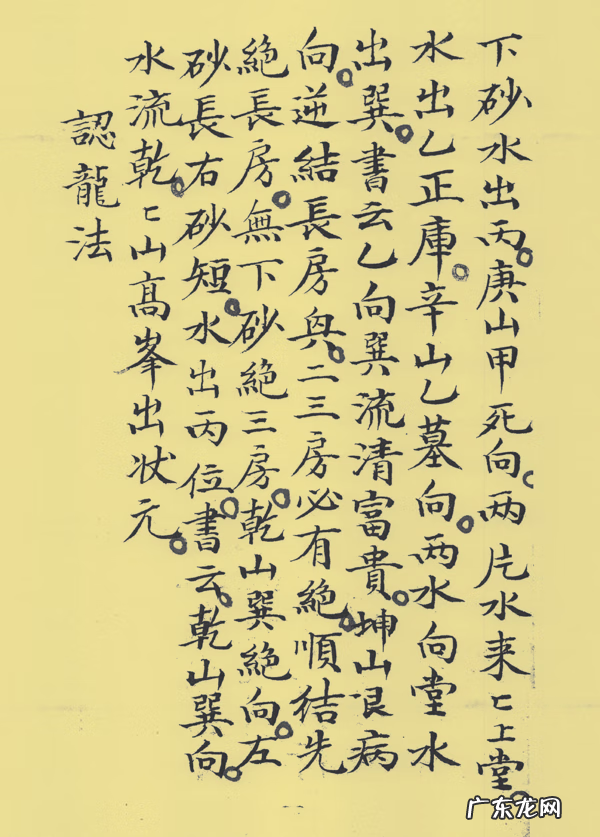 下砂水出丙。庚山甲死向。两片水来〻上堂。
水出乙正庫。辛山乙墓向。两水向堂水
出巽。書云乙向巽流清富貴。坤山艮病
向。逆結長房興。二三房必有絶。順结先
絶長房。無下砂絶三房。乾山巽絶向。左
砂長右砂短。水出丙位。書云。乾山巽向。
水流乾。〻山高峯出状元。
認龍法
广东龙网